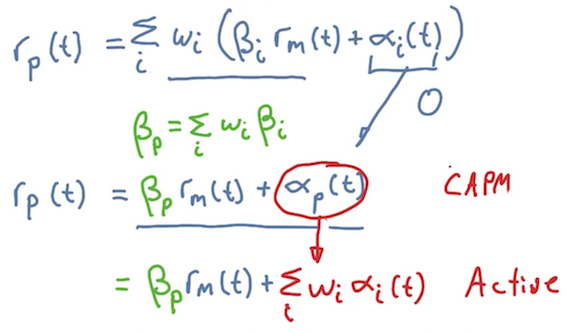 r_p(t) = Σ_i w_i (β_i r_m(t) + α_i(t))
0
β_p = Σ_i w_i β_i
r_p(t) = β_p r_m(t) + α_p(t) CAPM
= β_p r_m(t) + Σ_i w_i α_i(t) Active